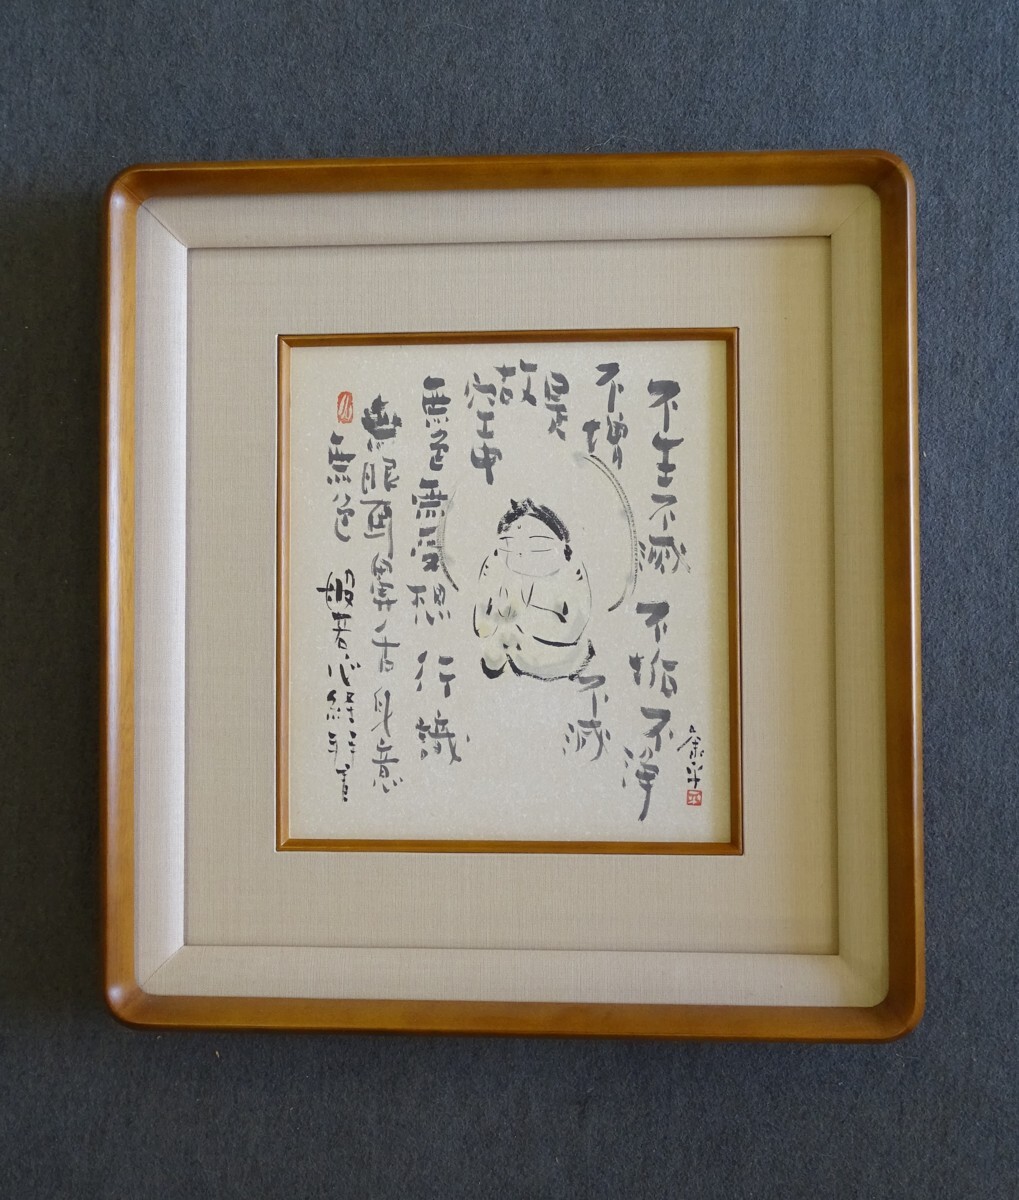 不生不滅 不垢不浄
不増
不減
是
故
空中
無色無受想行識
無眼耳鼻舌身意
無色 般若心経